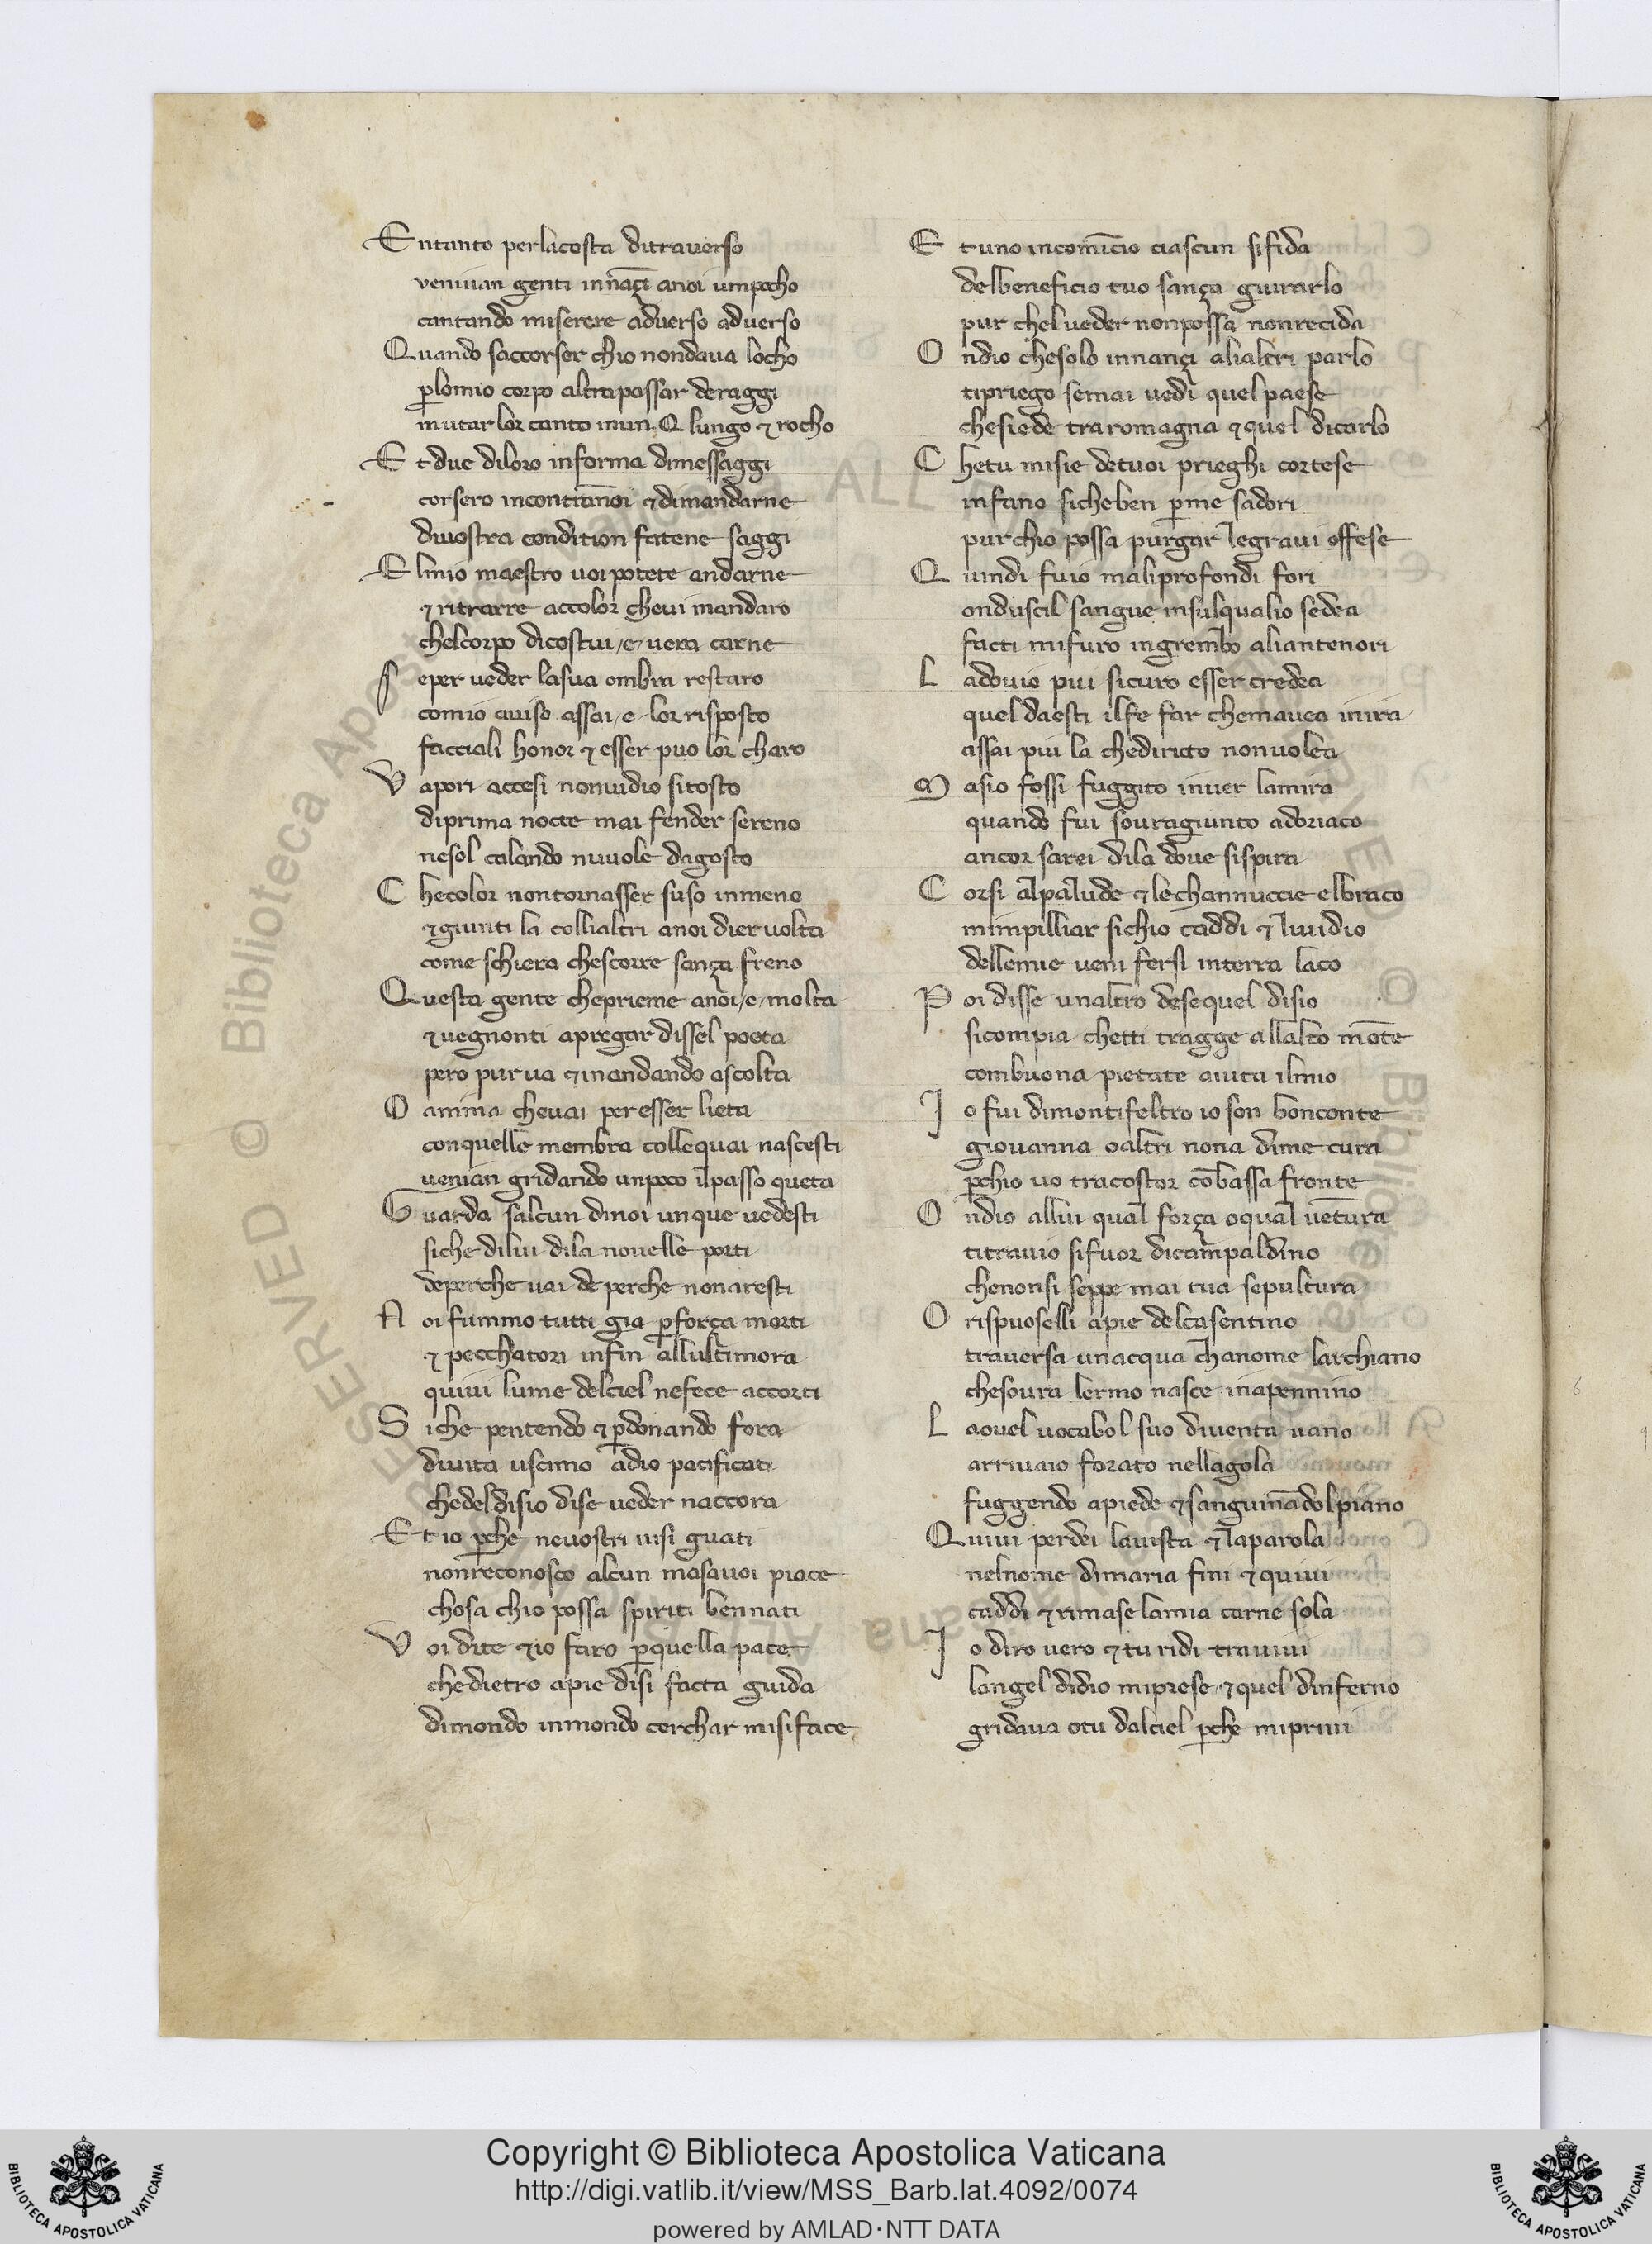 Entanto perlacosta ditrauerso
veniuan genti innāçi anoi umpocho
cantando miserere aduerso aduerso
Quando saccorser chio nondaua locho
ꝑlomio corpo altrapassar deraggi
mutar lor canto inun.O. lungo ⁊ rocho
Et due diloro informa dimessaggi
corsero incontrānoi ⁊ dimandarne
diuostra condition fatene saggi
Elmio maestro uoi potete andarne
⁊ ritrarre accolor cheui mandaro
chelcorpo dicostui /e/ uera carne
Seper ueder lasua ombra restaro
comio auiso assai /e/ lor risposto
facciali honor ⁊ esser puo lor charo
Vapori accesi nonuidio sitosto
diprima nocte mai fender sereno
nesol calando nuuole dagosto
Checolor nontornasser suso inmeno
⁊ giunti la collialtri anoi dier uolta
come schiera chescorre sança freno
Questa gente cheprieme anoi /e/ molta
⁊ uegnonti apregar dissel poeta
pero pur ua ⁊ inandando ascolta
O anima cheuai per esser lieta
conquelle membra collequai nascesti
uenian gridando unpoco ilpasso queta
Guarda salcun dinoi unque uedesti
siche dilui dila nouelle porti
deperche uai de perche nonaresti
Noi fummo tutti gia ꝑforça morti
⁊ pecchatori infin allultimora
quiui lume delciel nefece accorti
Siche pentendo ⁊ ꝑdonando fora
diuita uscimo adio pacificati
chedeldisio dise ueder naccora
Et io ꝑche neuostri uisi guati
nonreconosco alcun masauoi piace
chosa chio possa spiriti bennati
Voi dite ⁊ io faro ꝑquella pace
chedietro apie disi facta guida
dimondo inmondo cerchar misiface
Et uno incomīcio ciascun sifida
delbeneficio tuo sança giurarlo
pur chel ueder nonpossa nonrecida
Ondio chesolo innançi alialtri parlo
tipriego semai uedi quel paese
chesiede traromagna ⁊ quel dicarlo
Chetu misie detuoi prieghi cortese
infano sicheben ꝑme sadori
pur chio possa purgar legraui offese
Quindi fuio maliprofondi fori
onduscil sangue insulqualio sedea
facti mifuro ingrembo aliantenori
Ladouio piu sicuro esser credea
quel daesti ilfe far chemauea inira
assai piu la chediricto nonuolea
Masio fossi fuggito inuer lamira
quando fui souragiunto adoriaco
ancor sarei dila doue sispira
Corsi alpalude ⁊ lechannuccie elbraco
mimpilliar sichio caddi ⁊ liuidio
dellemie ueni fersi interra laco
Poi disse unaltro desequel disio
sicompia chetti tragge allalto mōte
combuona pietate aiuta ilmio
Io fui dimontifeltro io son bonconte
giouanna oaltri nona dime cura
ꝑchio uo tracostor cōbassa fronte
Ondio allui qual força oqual uētura
titrauio sifuor dicampaldino
chenonsi seppe mai tua sepultura
O rispuoselli apie delcasentino
trauersa unacqua chanome larchiano
chesoura lermo nasce inapennino
Laouel uocabol suo diuenta uano
arriuaio forato nellagola
fuggendo apiede ⁊ sanguināndolpiano
Quiui perdei lauista ⁊ laparola
nelnome dimaria fini ⁊ quiui
caddi ⁊ rimase lamia carne sola
Io diro uero ⁊ tu ridi trauiui
langel didio miprese ⁊ quel dinferno
gridaua otu dalciel ꝑche mipriui
Copyright © Biblioteca Apostolica Vaticana
http://digi.vatlib.it/view/MSS_Barb.lat.4092/0074
powered by AMLAD·NTT DATA